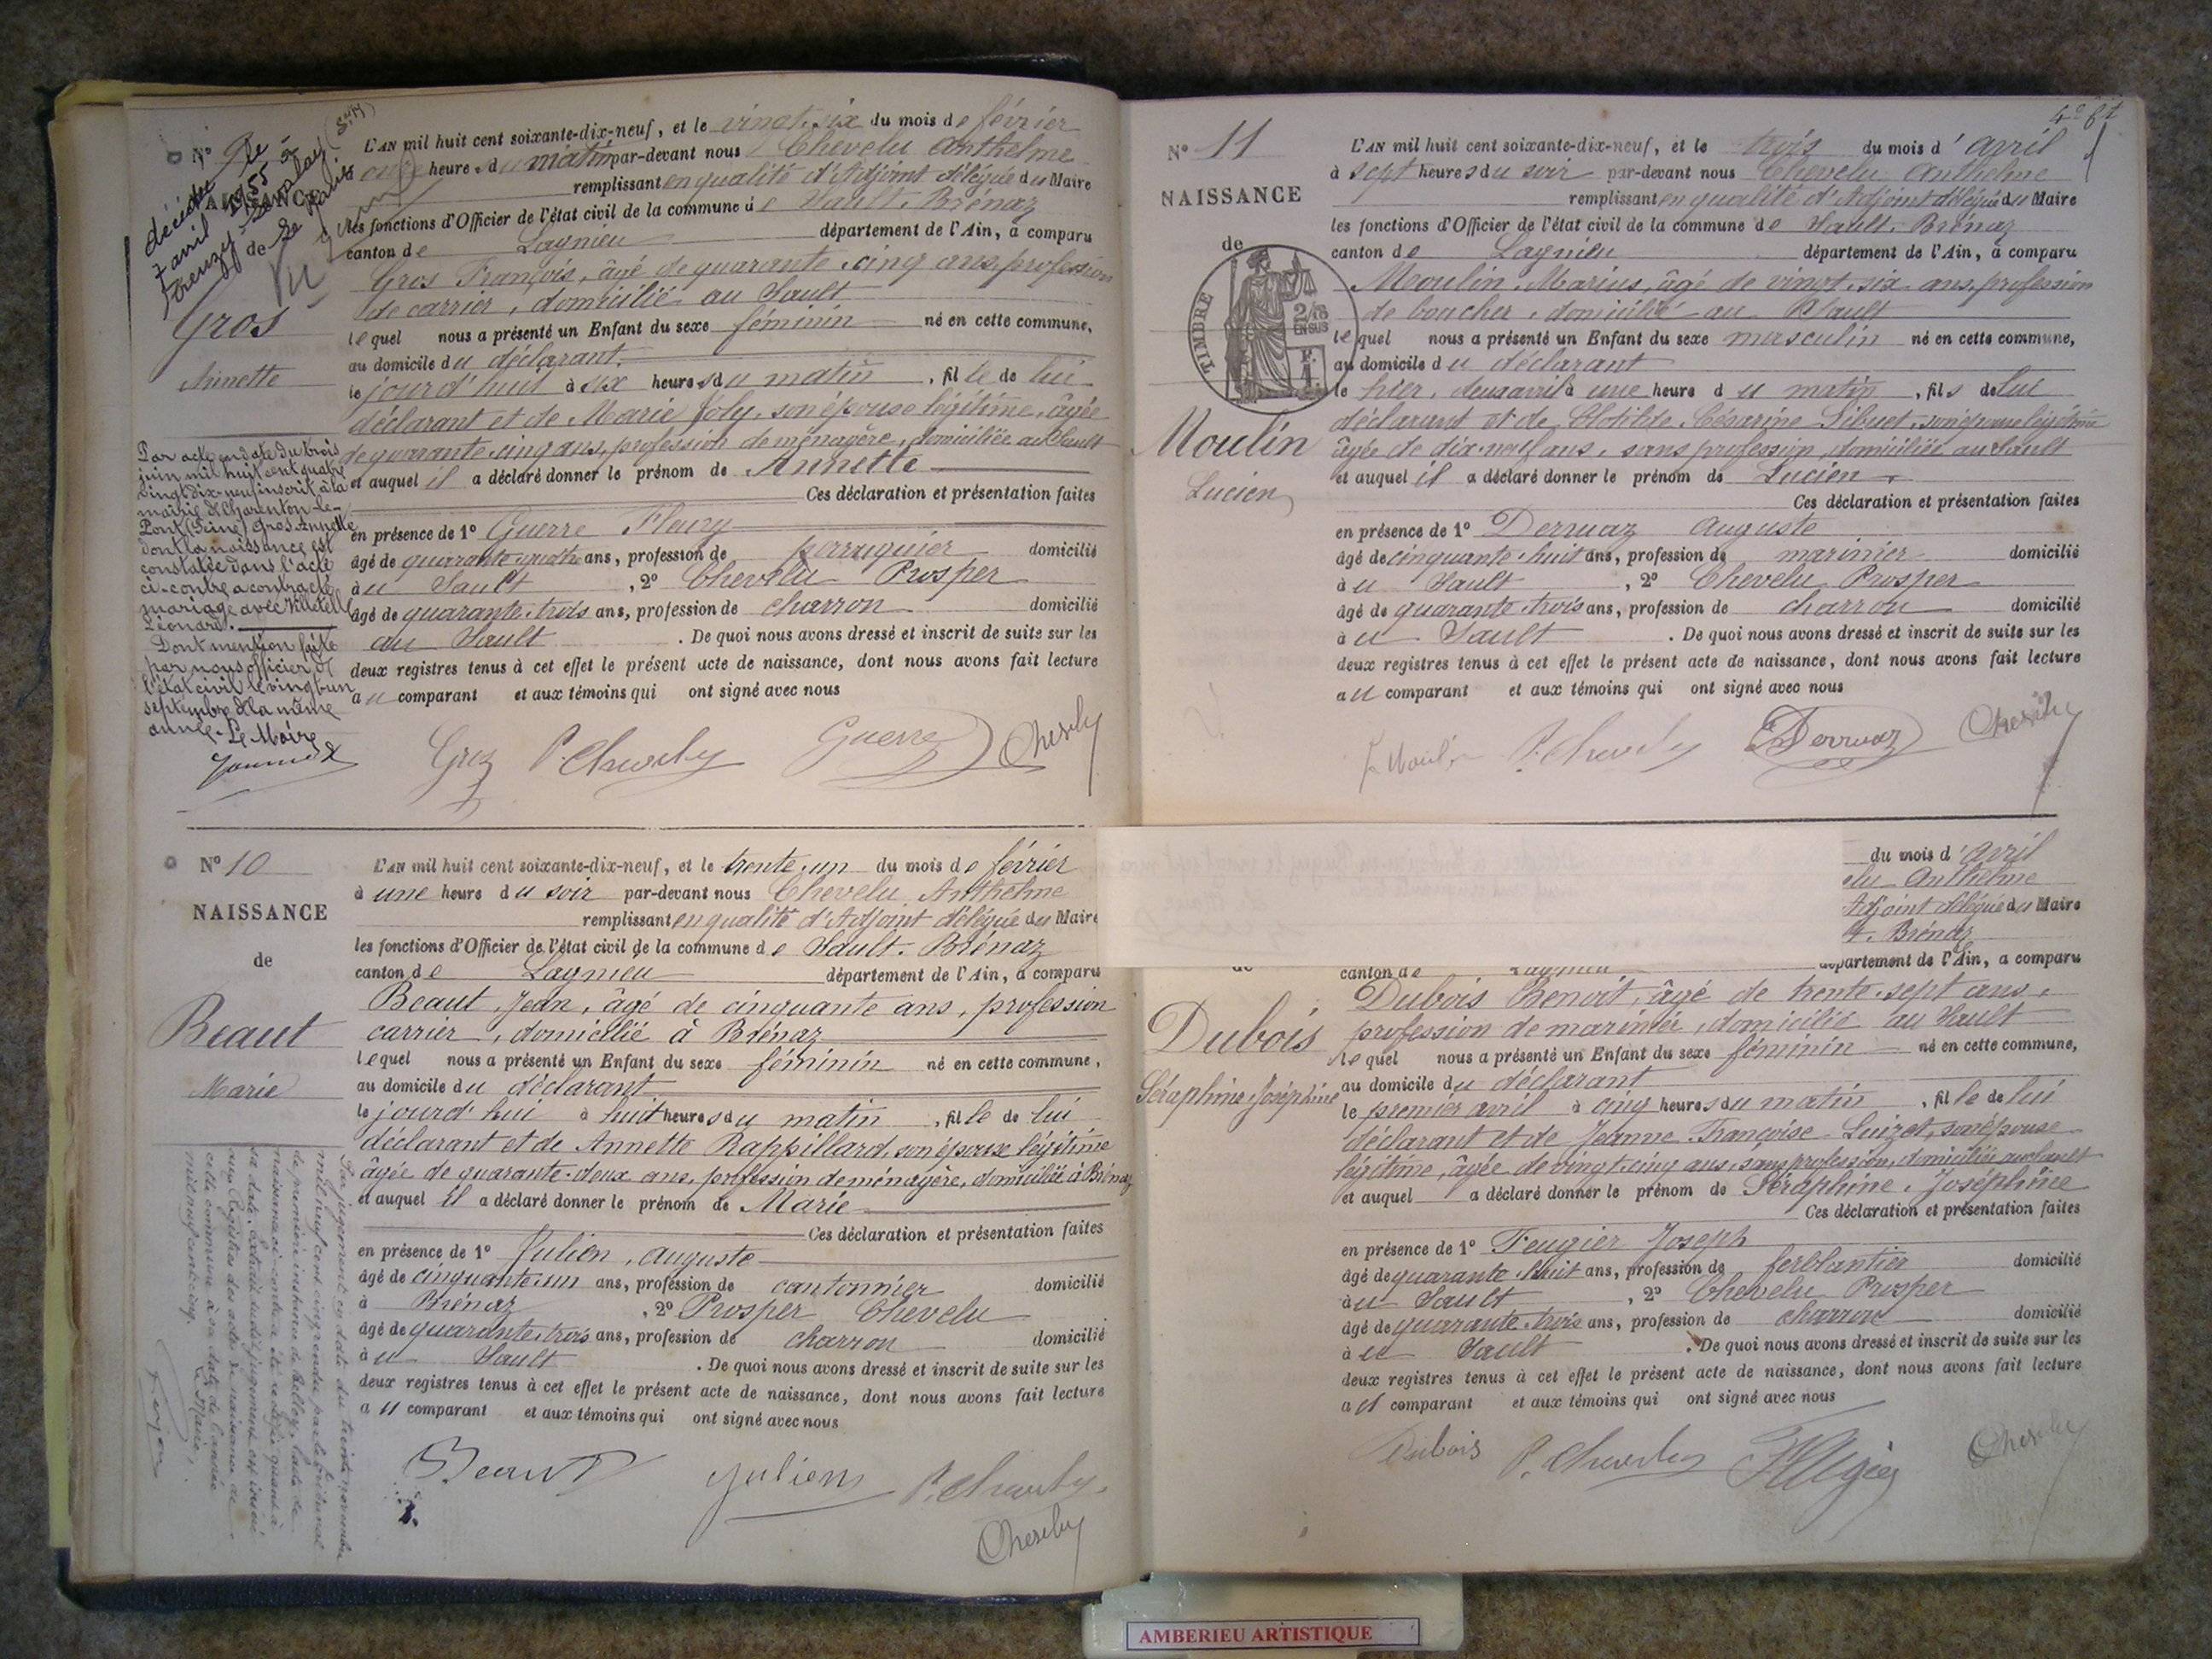 N° 9
NAISSANCE
de
Gros
Annette
décédée le
7 avril 1955 à
L'AN mil huit cent soixante-dix-neuf, et le vingt-six du mois de février
à onze heure du matin par-devant nous Chevelu Anthelme
remplissant en qualité d'Adjoint délégué du Maire
les fonctions d'Officier de l'état civil de la commune de Sault-Brénaz
canton de Lagnieu département de l'Ain, a comparu
Gros François, âgé de quarante-cinq ans, profession
de carrier, domicilié au Sault
lequel nous a présenté un Enfant du sexe féminin né en cette commune,
au domicile du déclarant
le jourd'hui à six heures du matin, fille de lui
déclarant et de Marie Joly, son épouse légitime, âgée
de quarante-cinq ans, profession de ménagère, domiciliée au Sault
et auquel il a déclaré donner le prénom de Annette
Ces déclaration et présentation faites
en présence de 1° Guerre Fleury
âgé de quarante-quatre ans, profession de perruquier domicilié
au Sault, 2° Chevelu Prosper
âgé de quarante-trois ans, profession de charron domicilié
au Sault. De quoi nous avons dressé et inscrit de suite sur les
deux registres tenus à cet effet le présent acte de naissance, dont nous avons fait lecture
au comparant et aux témoins qui ont signé avec nous
Groz P. Chevelu Guerre Chevelu
Par acte en date du trois
juin mil huit cent quatre
vingt dix-neuf inscrit à la
mairie de Charenton-le-
Pont (Seine) Gros Annette
dont la naissance est
constatée dans l'acte
ci-contre a contracté
mariage avec Villetelle
Léonard.
Dont mention faite
par nous officier de
l'état civil le vingt un
septembre de la même
année. Le Maire
N° 10
NAISSANCE
de
Beaut
Marie
L'AN mil huit cent soixante-dix-neuf, et le trente-un du mois de février
à une heure du soir par-devant nous Chevelu Anthelme
remplissant en qualité d'Adjoint délégué du Maire
les fonctions d'Officier de l'état civil de la commune de Sault-Brénaz
canton de Lagnieu département de l'Ain, a comparu
Beaut Jean, âgé de cinquante ans, profession
carrier, domicilié à Brénaz
lequel nous a présenté un Enfant du sexe féminin né en cette commune,
au domicile du déclarant
le jourd'hui à huit heures du matin, fille de lui
déclarant et de Annette Rappillard, son épouse légitime
âgée de quarante-deux ans, profession de ménagère, domiciliée à Brénaz
et auquel il a déclaré donner le prénom de Marie
Ces déclaration et présentation faites
en présence de 1° Julien, Auguste
âgé de cinquante-un ans, profession de cantonnier domicilié
à Brénaz, 2° Prosper Chevelu
âgé de quarante-trois ans, profession de charron domicilié
au Sault. De quoi nous avons dressé et inscrit de suite sur les
deux registres tenus à cet effet le présent acte de naissance, dont nous avons fait lecture
au comparant et aux témoins qui ont signé avec nous
Beaut Julien P. Chevelu
Chevelu
Par jugement en date du trente novembre
mil neuf cent cinq rendu par le tribunal
de première instance de Belley, l'acte de
naissance ci-contre a été rectifié quant à
sa date. Extrait dudit jugement est inséré
aux Registres des actes de naissance de
cette commune à sa date de l'année
mil neuf cent cinq. Le Maire,
N° 11
NAISSANCE
de
TIMBRE
2/10
EN SUS
Moulin
Lucien
L'AN mil huit cent soixante-dix-neuf, et le trois du mois d'avril
à sept heures du soir par-devant nous Chevelu Anthelme
remplissant en qualité d'Adjoint délégué du Maire
les fonctions d'Officier de l'état civil de la commune de Sault-Brénaz
canton de Lagnieu département de l'Ain, a comparu
Moulin, Marius, âgé de vingt-six ans, profession
de boucher, domicilié au Sault
lequel nous a présenté un Enfant du sexe masculin né en cette commune,
au domicile du déclarant
le hier, deux avril à une heure du matin, fils de lui
déclarant et de Clotilde Césarine Libuet, son épouse légitime
âgée de dix-neuf ans, sans profession, domiciliée au Sault
et auquel il a déclaré donner le prénom de Lucien
Ces déclaration et présentation faites
en présence de 1° Derruaz Auguste
âgé de cinquante-huit ans, profession de marinier domicilié
au Sault, 2° Chevelu Prosper
âgé de quarante-trois ans, profession de charron domicilié
au Sault. De quoi nous avons dressé et inscrit de suite sur les
deux registres tenus à cet effet le présent acte de naissance, dont nous avons fait lecture
au comparant et aux témoins qui ont signé avec nous
Moulin P. Chevelu Derruaz Chevelu
Dubois
Séraphine Joséphine
du mois d'avril
elu Anthelme
Adjoint délégué du Maire
t. Brénaz
canton de Lagnieu département de l'Ain, a comparu
Dubois Benoit, âgé de trente-sept ans,
profession de marinier, domicilié au Sault
lequel nous a présenté un Enfant du sexe féminin né en cette commune,
au domicile du déclarant
le premier avril à cinq heures du matin, fille de lui
déclarant et de Jeanne Françoise Luizet, son épouse
légitime, âgée de vingt-cinq ans, sans profession, domiciliée au Sault
et auquel a déclaré donner le prénom de Séraphine, Joséphine
Ces déclaration et présentation faites
en présence de 1° Feugier Joseph
âgé de quarante-huit ans, profession de ferblantier domicilié
au Sault, 2° Chevelu Prosper
âgé de quarante-trois ans, profession de charron domicilié
au Sault. De quoi nous avons dressé et inscrit de suite sur les
deux registres tenus à cet effet le présent acte de naissance, dont nous avons fait lecture
au comparant et aux témoins qui ont signé avec nous
Dubois P. Chevelu Feugier Chevelu
AMBERIEU ARTISTIQUE